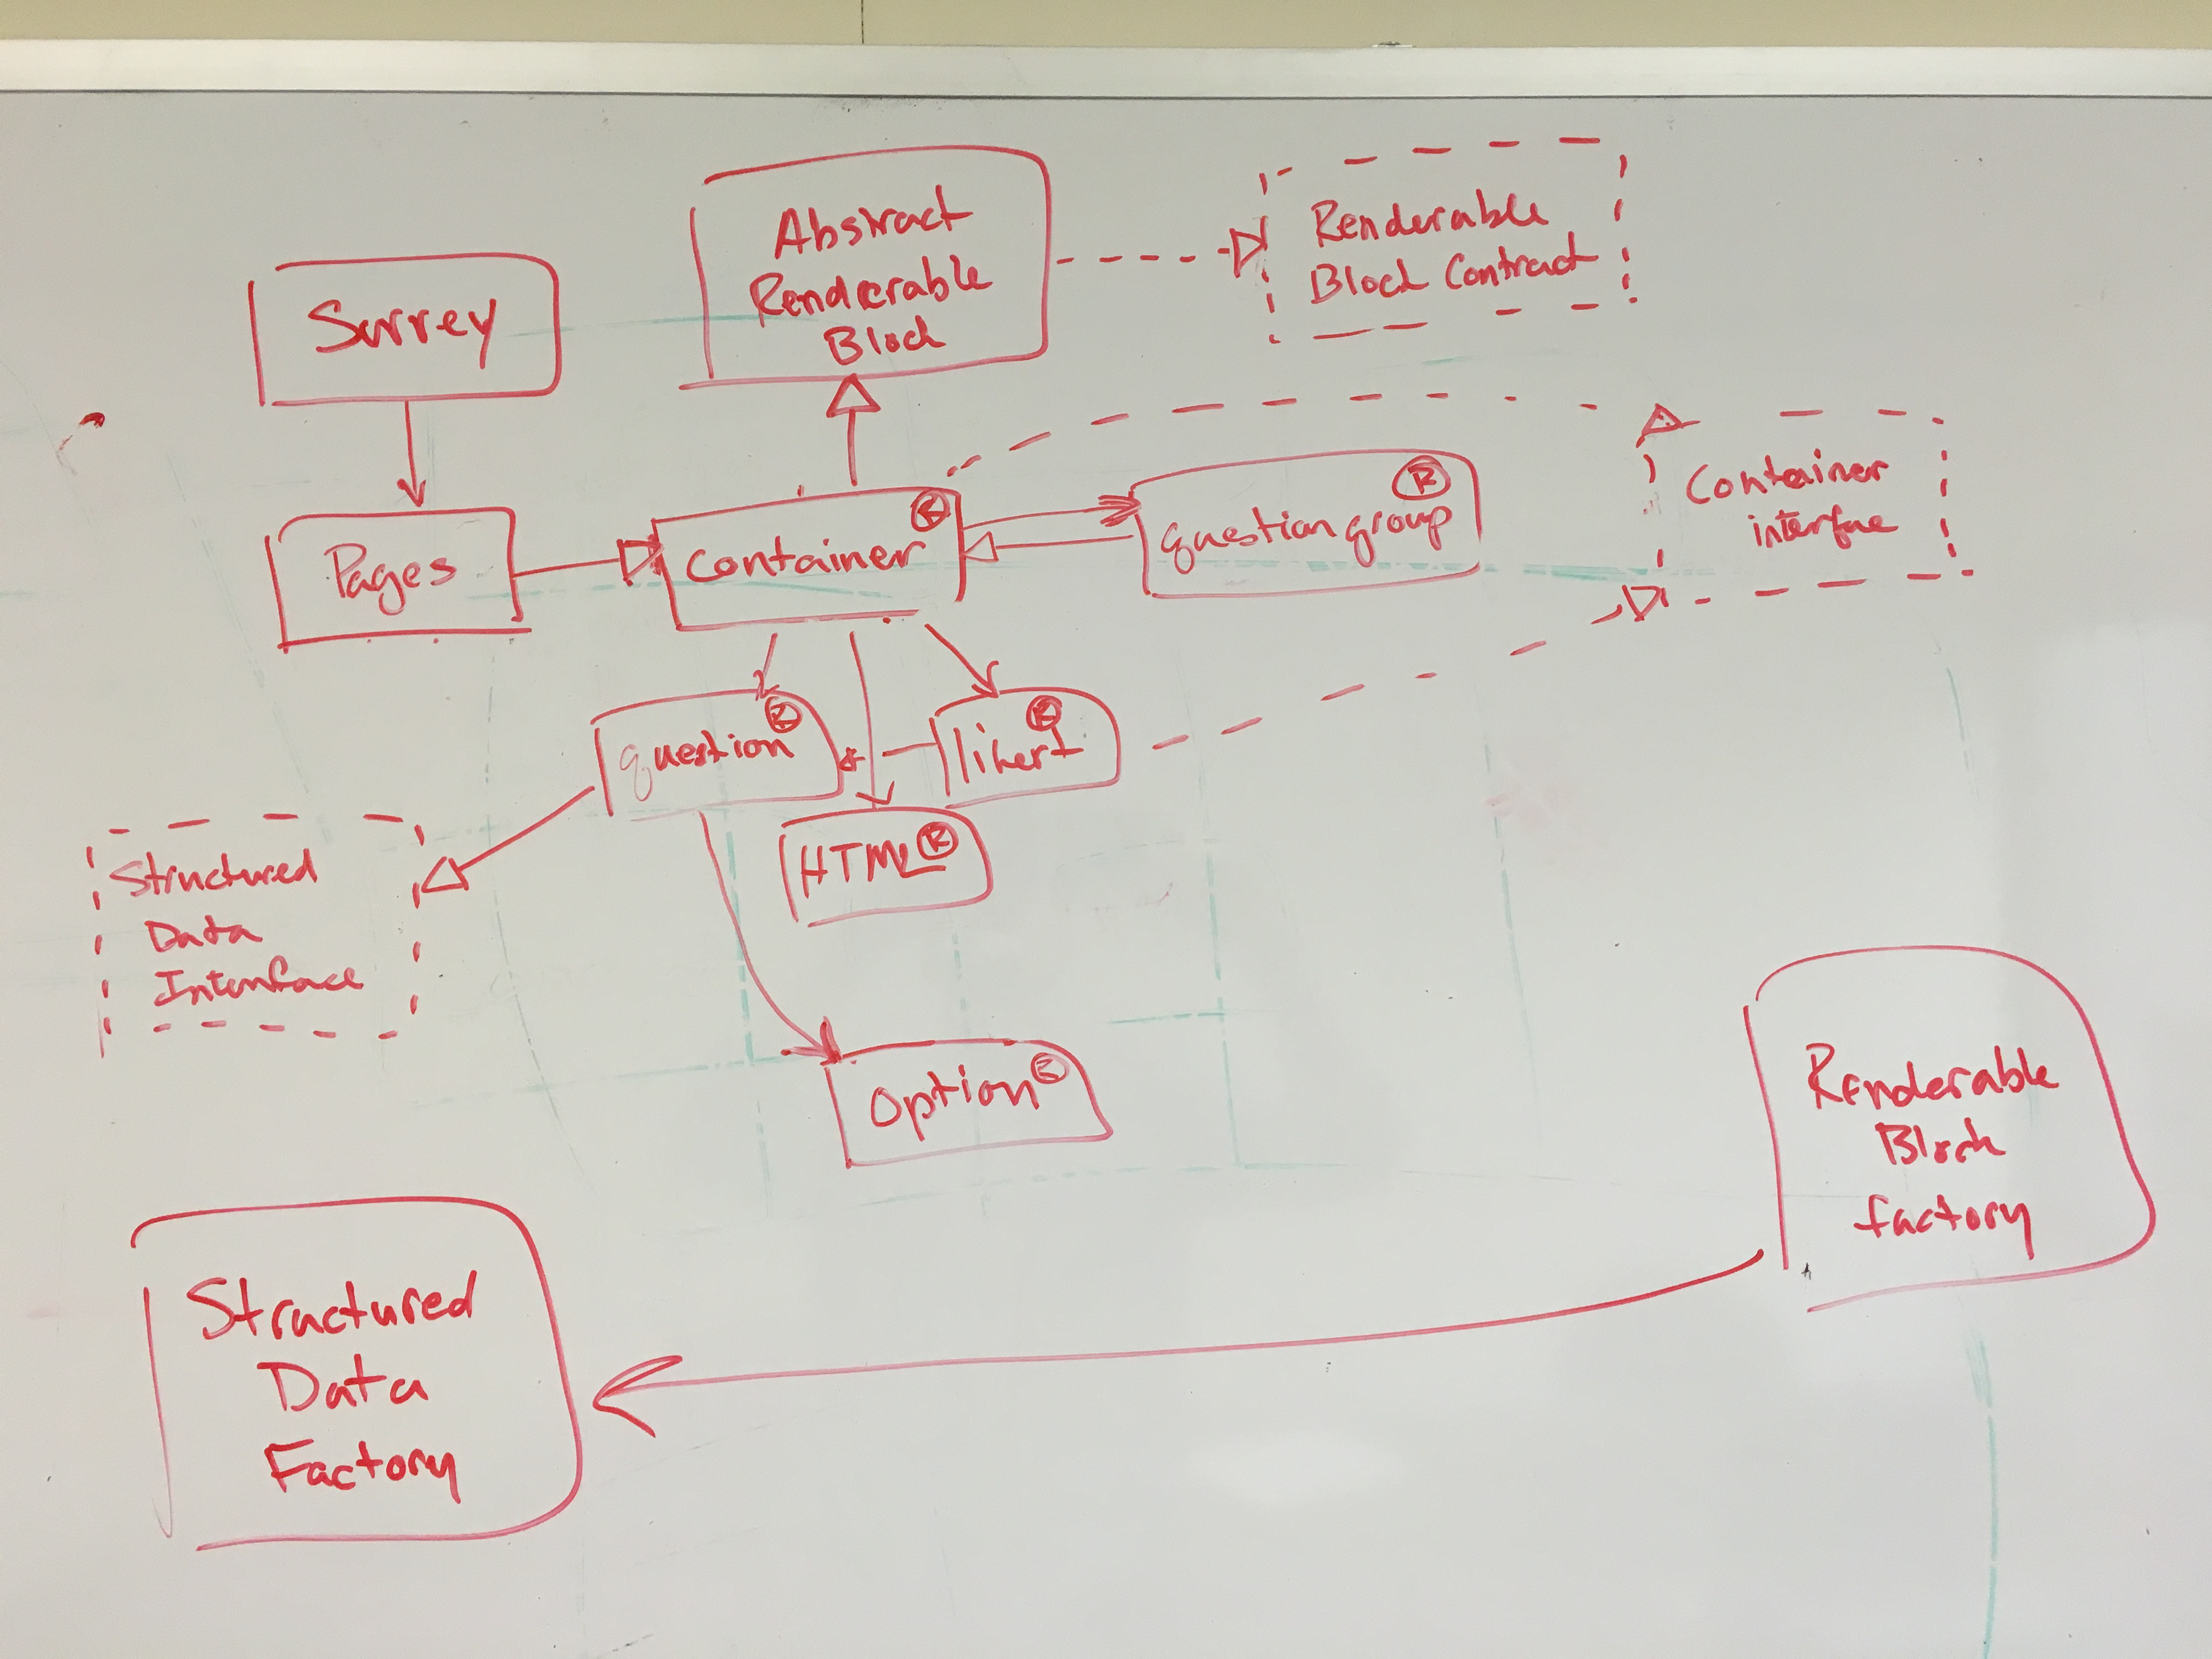 Survey
Abstract
Renderable
Block
Renderable
Block Contract
Pages
Container ®
question group ®
Container
interface
question ®
likert ®
HTML ®
Structured
Data
Interface
Option ®
Renderable
Block
factory
Structured
Data
Factory